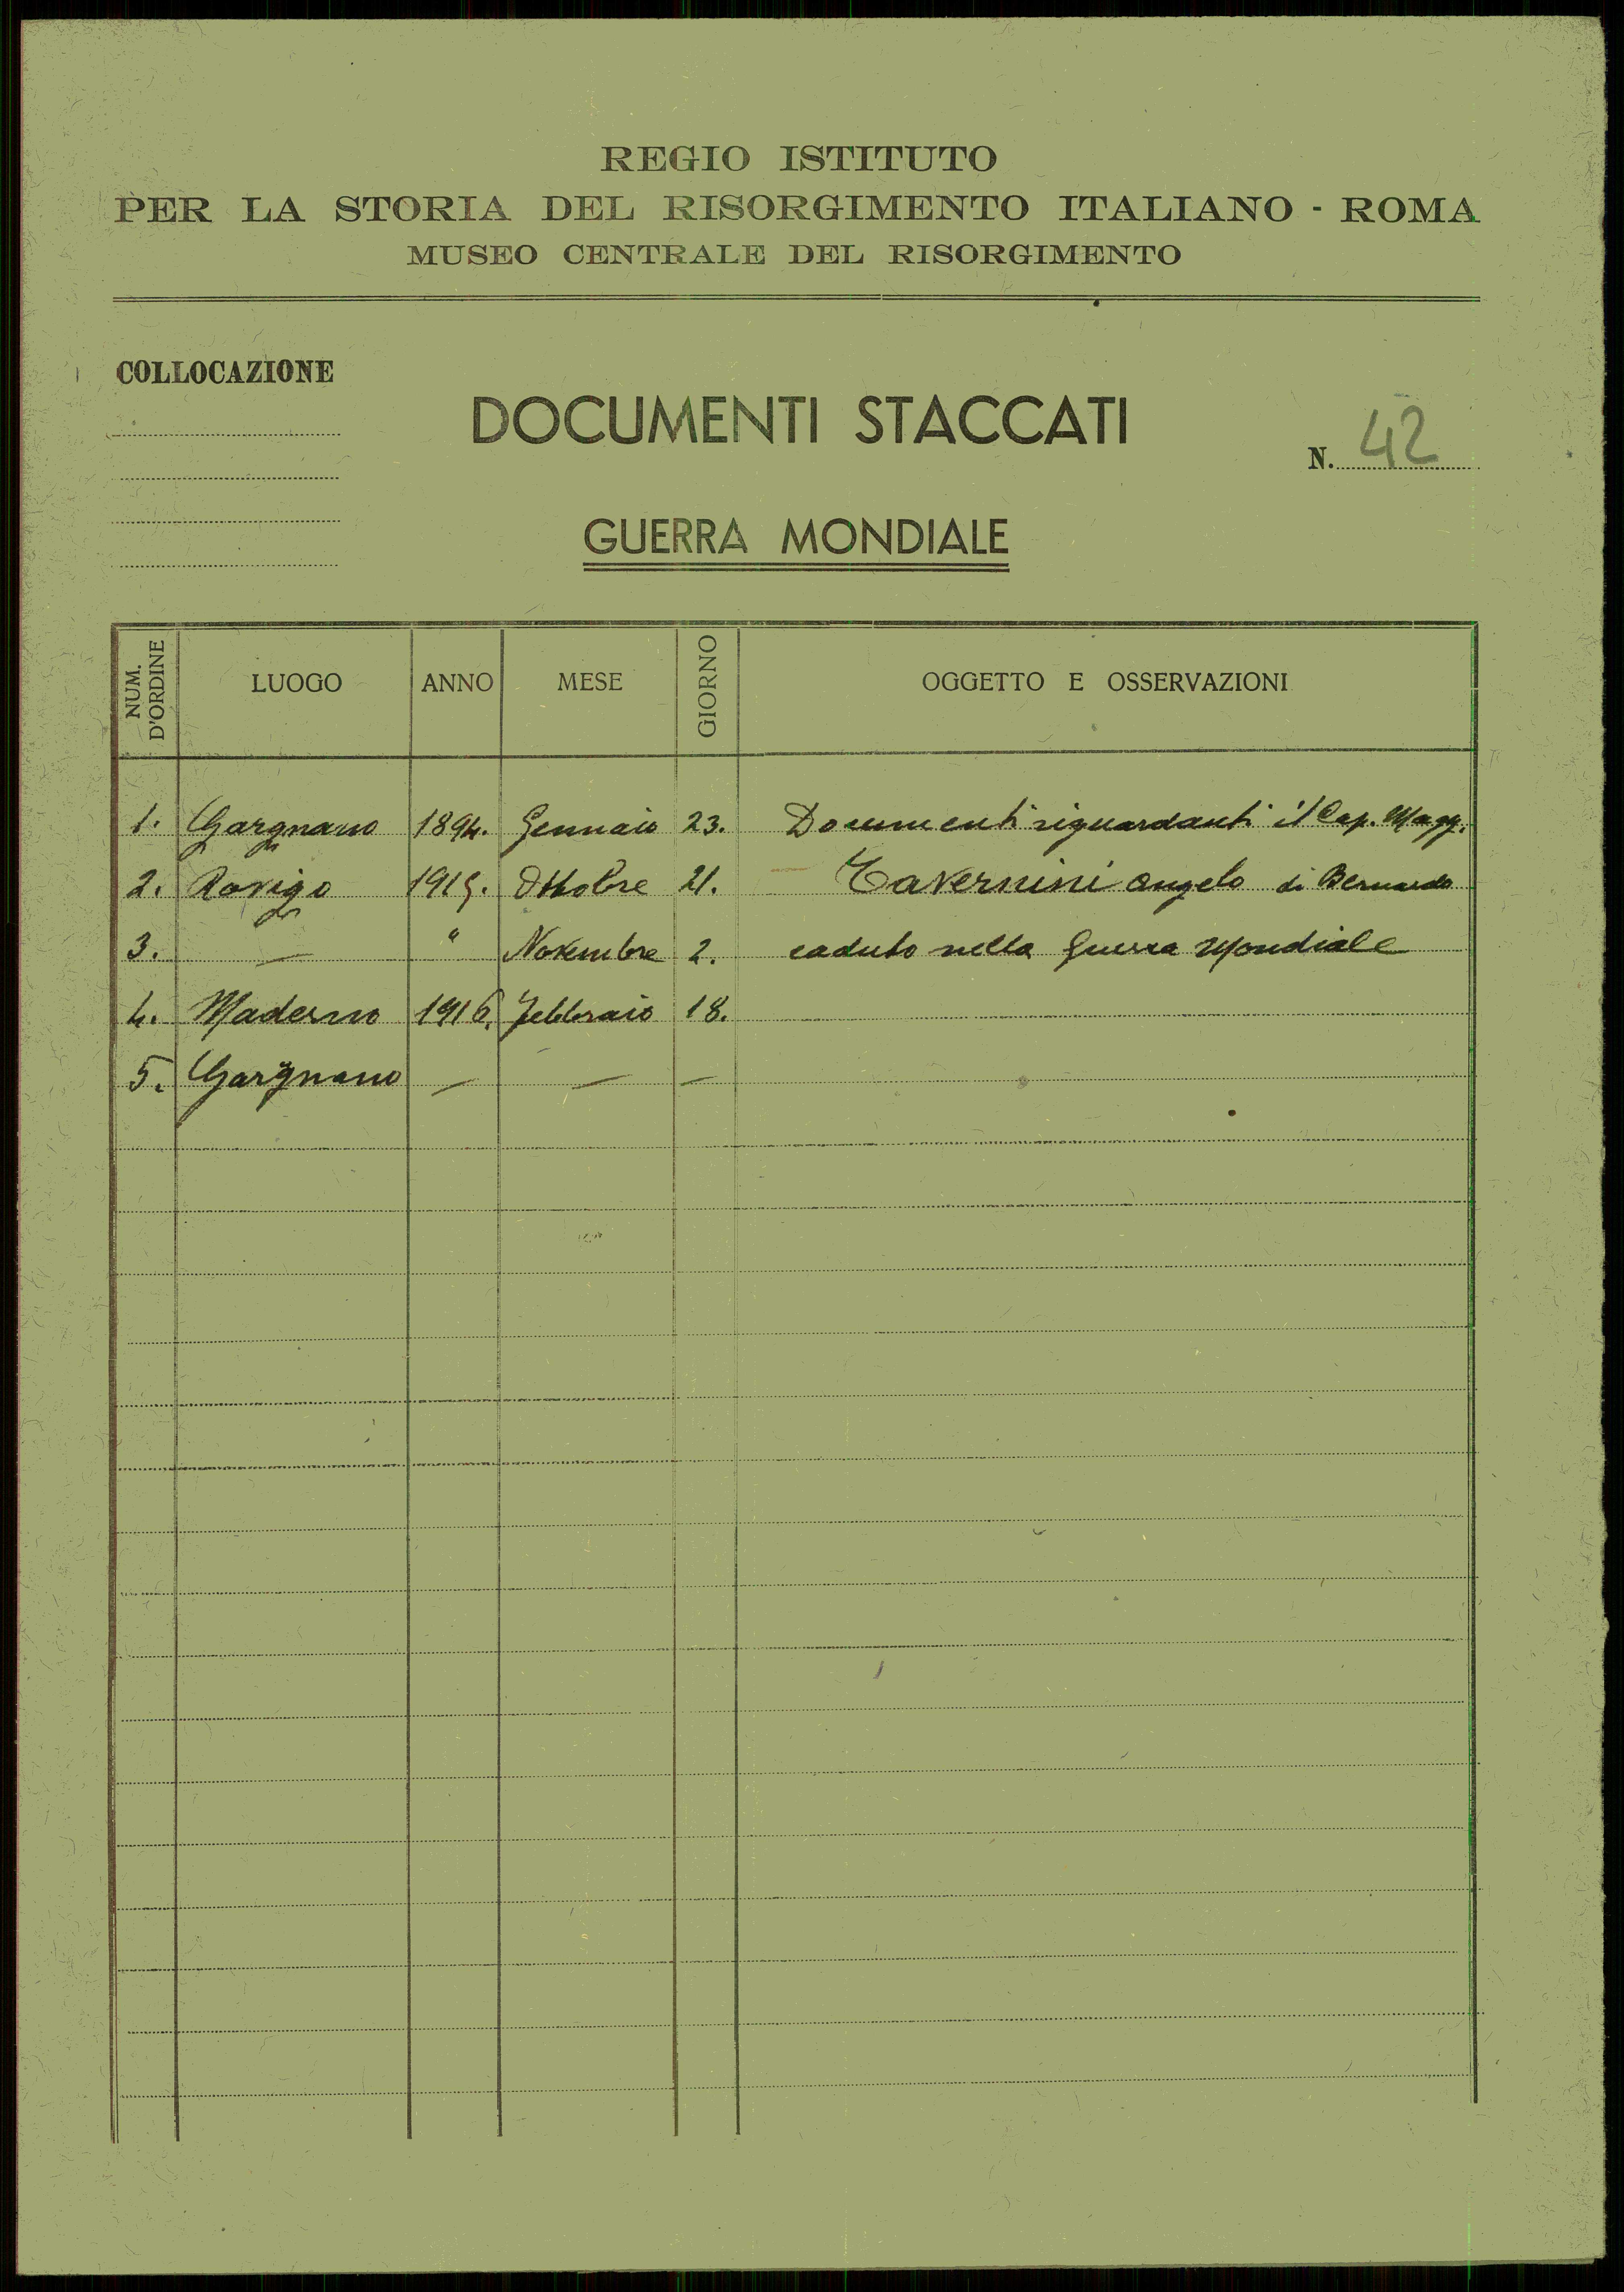 REGIO ISTITUTO
PER LA STORIA DEL RISORGIMENTO ITALIANO - ROMA
MUSEO CENTRALE DEL RISORGIMENTO
COLLOCAZIONE
DOCUMENTI STACCATI
N. 42
GUERRA MONDIALE
NUM. D'ORDINE LUOGO ANNO MESE GIORNO OGGETTO E OSSERVAZIONI
1. Gargnano 1894. Gennaio 23. Documenti riguardanti il Cap. Magg.
2. Rovigo 1915. Ottobre 21. Tavernini Angelo di Bernardo
3. — " Novembre 2. caduto nella Guerra Mondiale
4. Maderno 1916. Febbraio 18.
5. Gargnano — — —